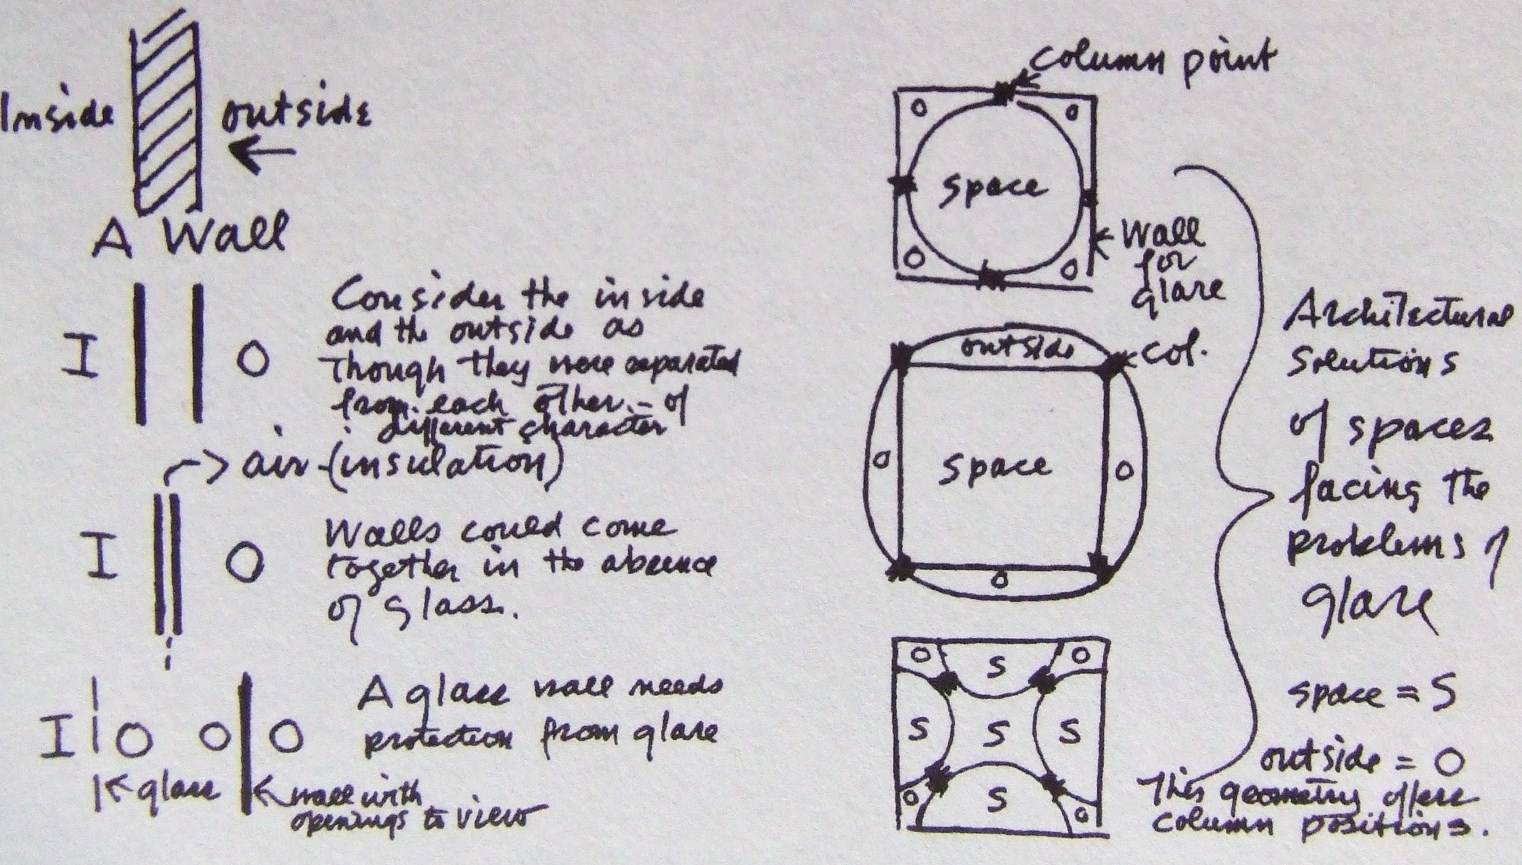 Inside
outside
A Wall
I
O
Consider the inside
and the outside as
Though they were separated
from each other. - of
different character
air - (insulation)
I
O
Walls could come
together in the absence
of glass.
I
O
O
O
A glass wall needs
protection from glare
glass
wall with
openings to view
column point
O
O
space
O
O
Wall
for
glare
outside
col.
O
space
O
O
O
S
O
S
S
S
O
S
O
Architectural
Solutions
of spaces
facing the
problems of
glare
space = S
outside = O
This geometry offers
column positions.